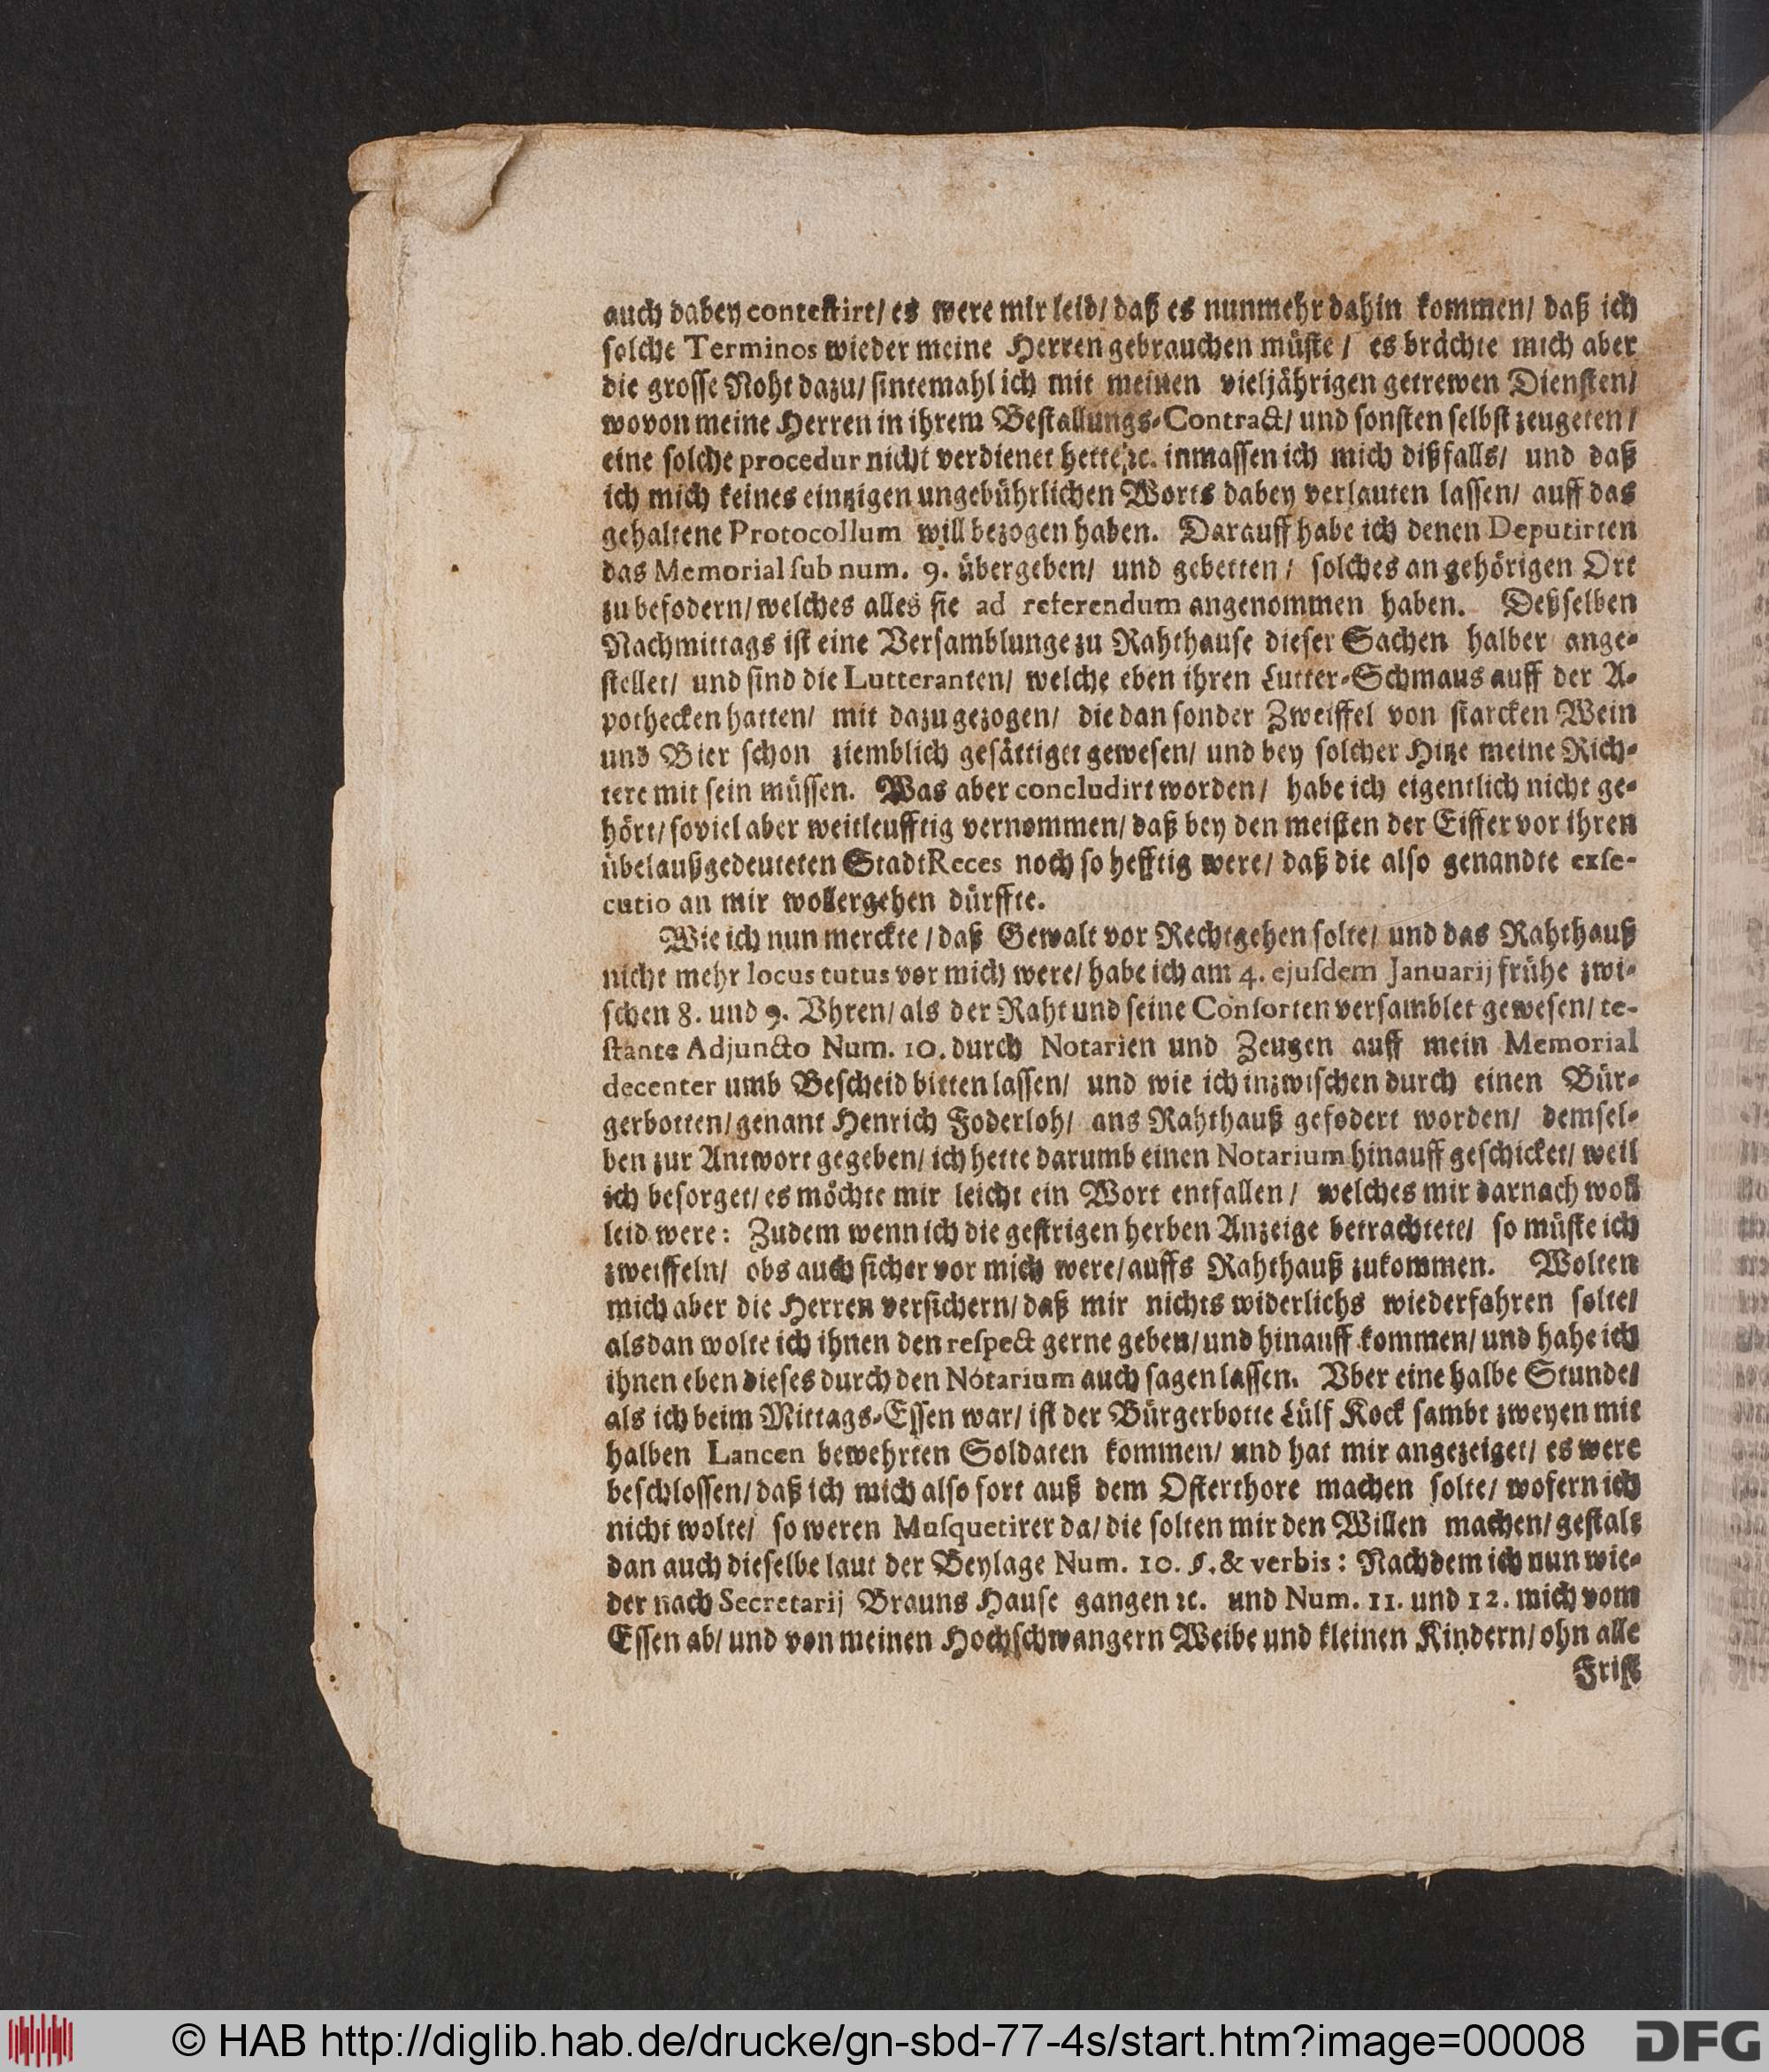 auch dabey contestirt/ es were mir leid/ daß es nunmehr dahin kommen/ daß ich
solche Terminos wieder meine Herren gebrauchen müste / es brächte mich aber
die grosse Noht dazu/ sintemahl ich mit meinen vieljährigen getrewen Diensten/
wovon meine Herren in ihrem Bestallungs-Contract/ und sonsten selbst zeugeten/
eine solche procedur nicht verdienet hette ꝛc. inmassen ich mich dißfalls/ und daß
ich mich keines eintzigen ungebührlichen Worts dabey verlauten lassen/ auff das
gehaltene Protocollum will bezogen haben. Darauff habe ich denen Deputirten
das Memorial sub num. 9. übergeben/ und gebetten/ solches an gehörigen Ort
zu befodern/ welches alles sie ad referendum angenommen haben. Deßselben
Nachmittags ist eine Versamblunge zu Rahthause dieser Sachen halber ange-
stellet/ und sind die Lutteranten/ welche eben ihren Lutter-Schmaus auff der A-
pothecken hatten/ mit dazu gezogen/ die dan sonder Zweiffel von starcken Wein
und Bier schon ziemblich gesättiget gewesen/ und bey solcher Hitze meine Rich-
tere mit sein müssen. Was aber concludirt worden/ habe ich eigentlich nicht ge-
hört/ soviel aber weitleufftig vernommen/ daß bey den meisten der Eiffer vor ihren
übelaußgedeuteten StadtReces noch so hefftig were/ daß die also genandte exse-
cutio an mir woll ergehen dürffte.
Wie ich nun merckte / daß Gewalt vor Recht gehen solte/ und das Rahthauß
nicht mehr locus tutus vor mich were/ habe ich am 4. ejusdem Januarij frühe zwi-
schen 8. und 9. Vhren/ als der Raht und seine Consorten versamblet gewesen/ te-
stante Adjuncto Num. 10. durch Notarien und Zeugen auff mein Memorial
decenter umb Bescheid bitten lassen/ und wie ich inzwischen durch einen Bür-
gerbotten/ genant Henrich Foderloh/ ans Rahthauß gefodert worden/ demsel-
ben zur Antwort gegeben/ ich hette darumb einen Notarium hinauff geschicket/ weil
ich besorget/ es möchte mir leicht ein Wort entfallen / welches mir darnach woll
leid were: Zudem wenn ich die gestrigen herben Anzeige betrachtete/ so müste ich
zweiffeln/ obs auch sicher vor mich were/ auffs Rahthauß zukommen. Wolten
mich aber die Herren versichern/ daß mir nichts widerlichs wiederfahren solte/
alsdan wolte ich ihnen den respect gerne geben/ und hinauff kommen/ und hahe ich
ihnen eben dieses durch den Notarium auch sagen lassen. Vber eine halbe Stunde/
als ich beim Mittags-Essen war/ ist der Bürgerbotte Lülf Kock sambt zweyen mit
halben Lancen bewehrten Soldaten kommen/ und hat mir angezeiget/ es were
beschlossen/ daß ich mich also fort auß dem Osterthore machen solte/ wofern ich
nicht wolte/ so weren Musquetirer da/ die solten mir den Willen machen/ gestalt
dan auch dieselbe laut der Beylage Num. 10. §. & verbis: Nachdem ich nun wie-
der nach Secretarij Brauns Hause gangen ꝛc. und Num. 11. und 12. mich vom
Essen ab/ und von meinen Hochschwangern Weibe und kleinen Kindern/ ohn alle
Frist
© HAB http://diglib.hab.de/drucke/gn-sbd-77-4s/start.htm?image=00008
DFG